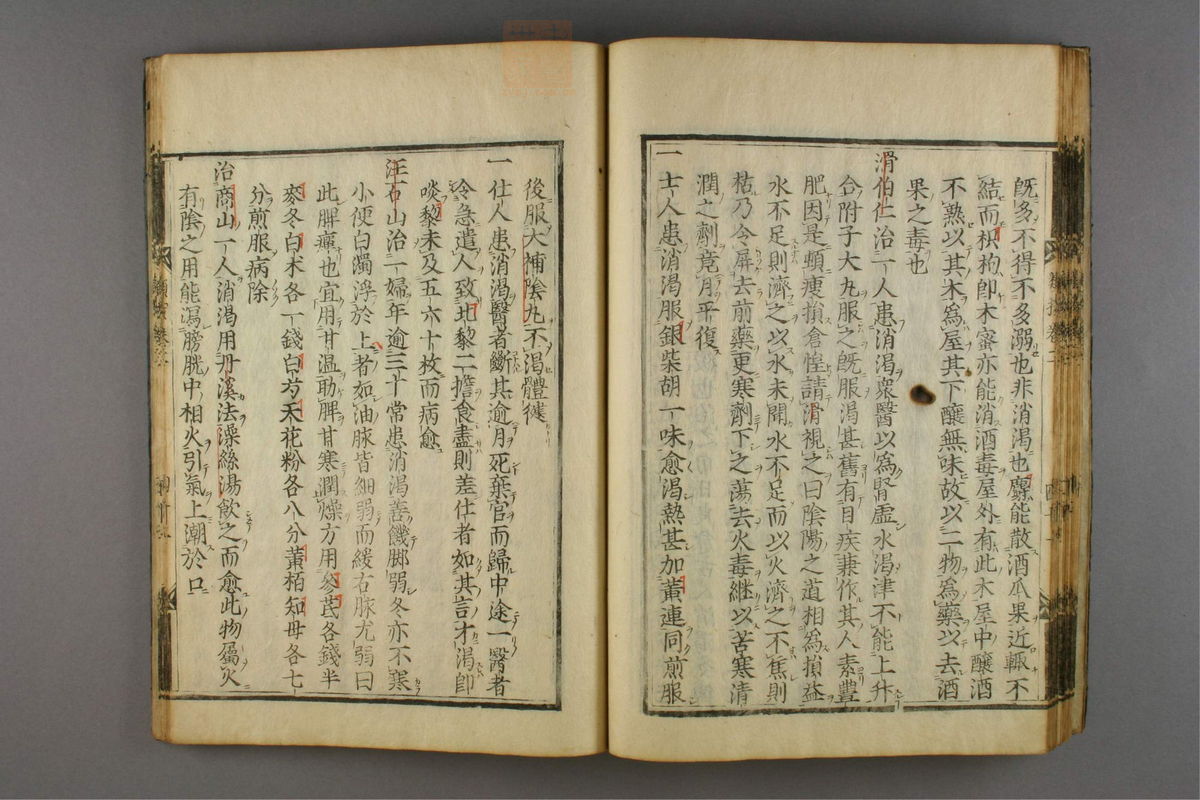 既多不得不多溺也非消渴也麝能散酒瓜果近輙不
結而枳枸即木蜜亦能消酒毒屋外有此木屋中釀酒
不熟以其木爲屋其下釀無味故以二物爲藥以去酒
果之毒也
滑伯仁治一人患消渴衆醫以爲腎虛水渴津不能上升
合附子大丸服之既服渴甚舊有目疾兼作其人素豐
肥因是頓瘦損倉惶請滑視之曰陰陽之道相爲損益
水不足則濟之以水未聞水不足而以火濟之不焦則
枯乃令屏去前藥更寒劑下之蕩去火毒繼以苦寒清
潤之劑竟月平復
一士人患消渴服銀柴胡一味愈渴熱甚加黄連同煎服
後服大補陰丸不渴體健
一仕人患消渴醫者斷其逾月死棄官而歸中途一醫者
令急遣人致北黎二擔食盡則差仕者如其言才渴即
啖黎未及五六十枚而病愈
汪石山治一婦年逾三十常患消渴善饑脚弱冬亦不寒
小便白濁浮於上者如油脉皆細弱而緩右脉尤弱曰
此脾癉也宜用甘温助脾甘寒潤燥方用參茋各錢半
麥冬白术各一錢白芍天花粉各八分黄栢知母各七
分煎服病除
治商山一人消渴用丹溪法澡絲湯飲之而愈此物屬火
有陰之用能瀉膀胱中相火引氣上潮於口